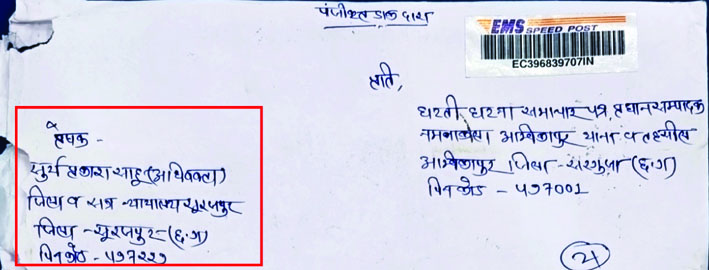 पंजीकृत डाक द्वारा
EMS SPEED POST
EC396839707IN
प्रति,
धरती धरना समाचार पत्र, प्रधान सम्पादक
नमनाकला अम्बिकापुर थाना व तहसील
अम्बिकापुर जिला - सरगुजा (छ.ग)
पिनकोड - ५१७००१
प्रेषक -
सूर्य प्रकाश साहू (अधिवक्ता)
जिला व सत्र न्यायालय सूरजपुर
जिला - सूरजपुर - (छ.ग)
पिनकोड - ५१७२२१